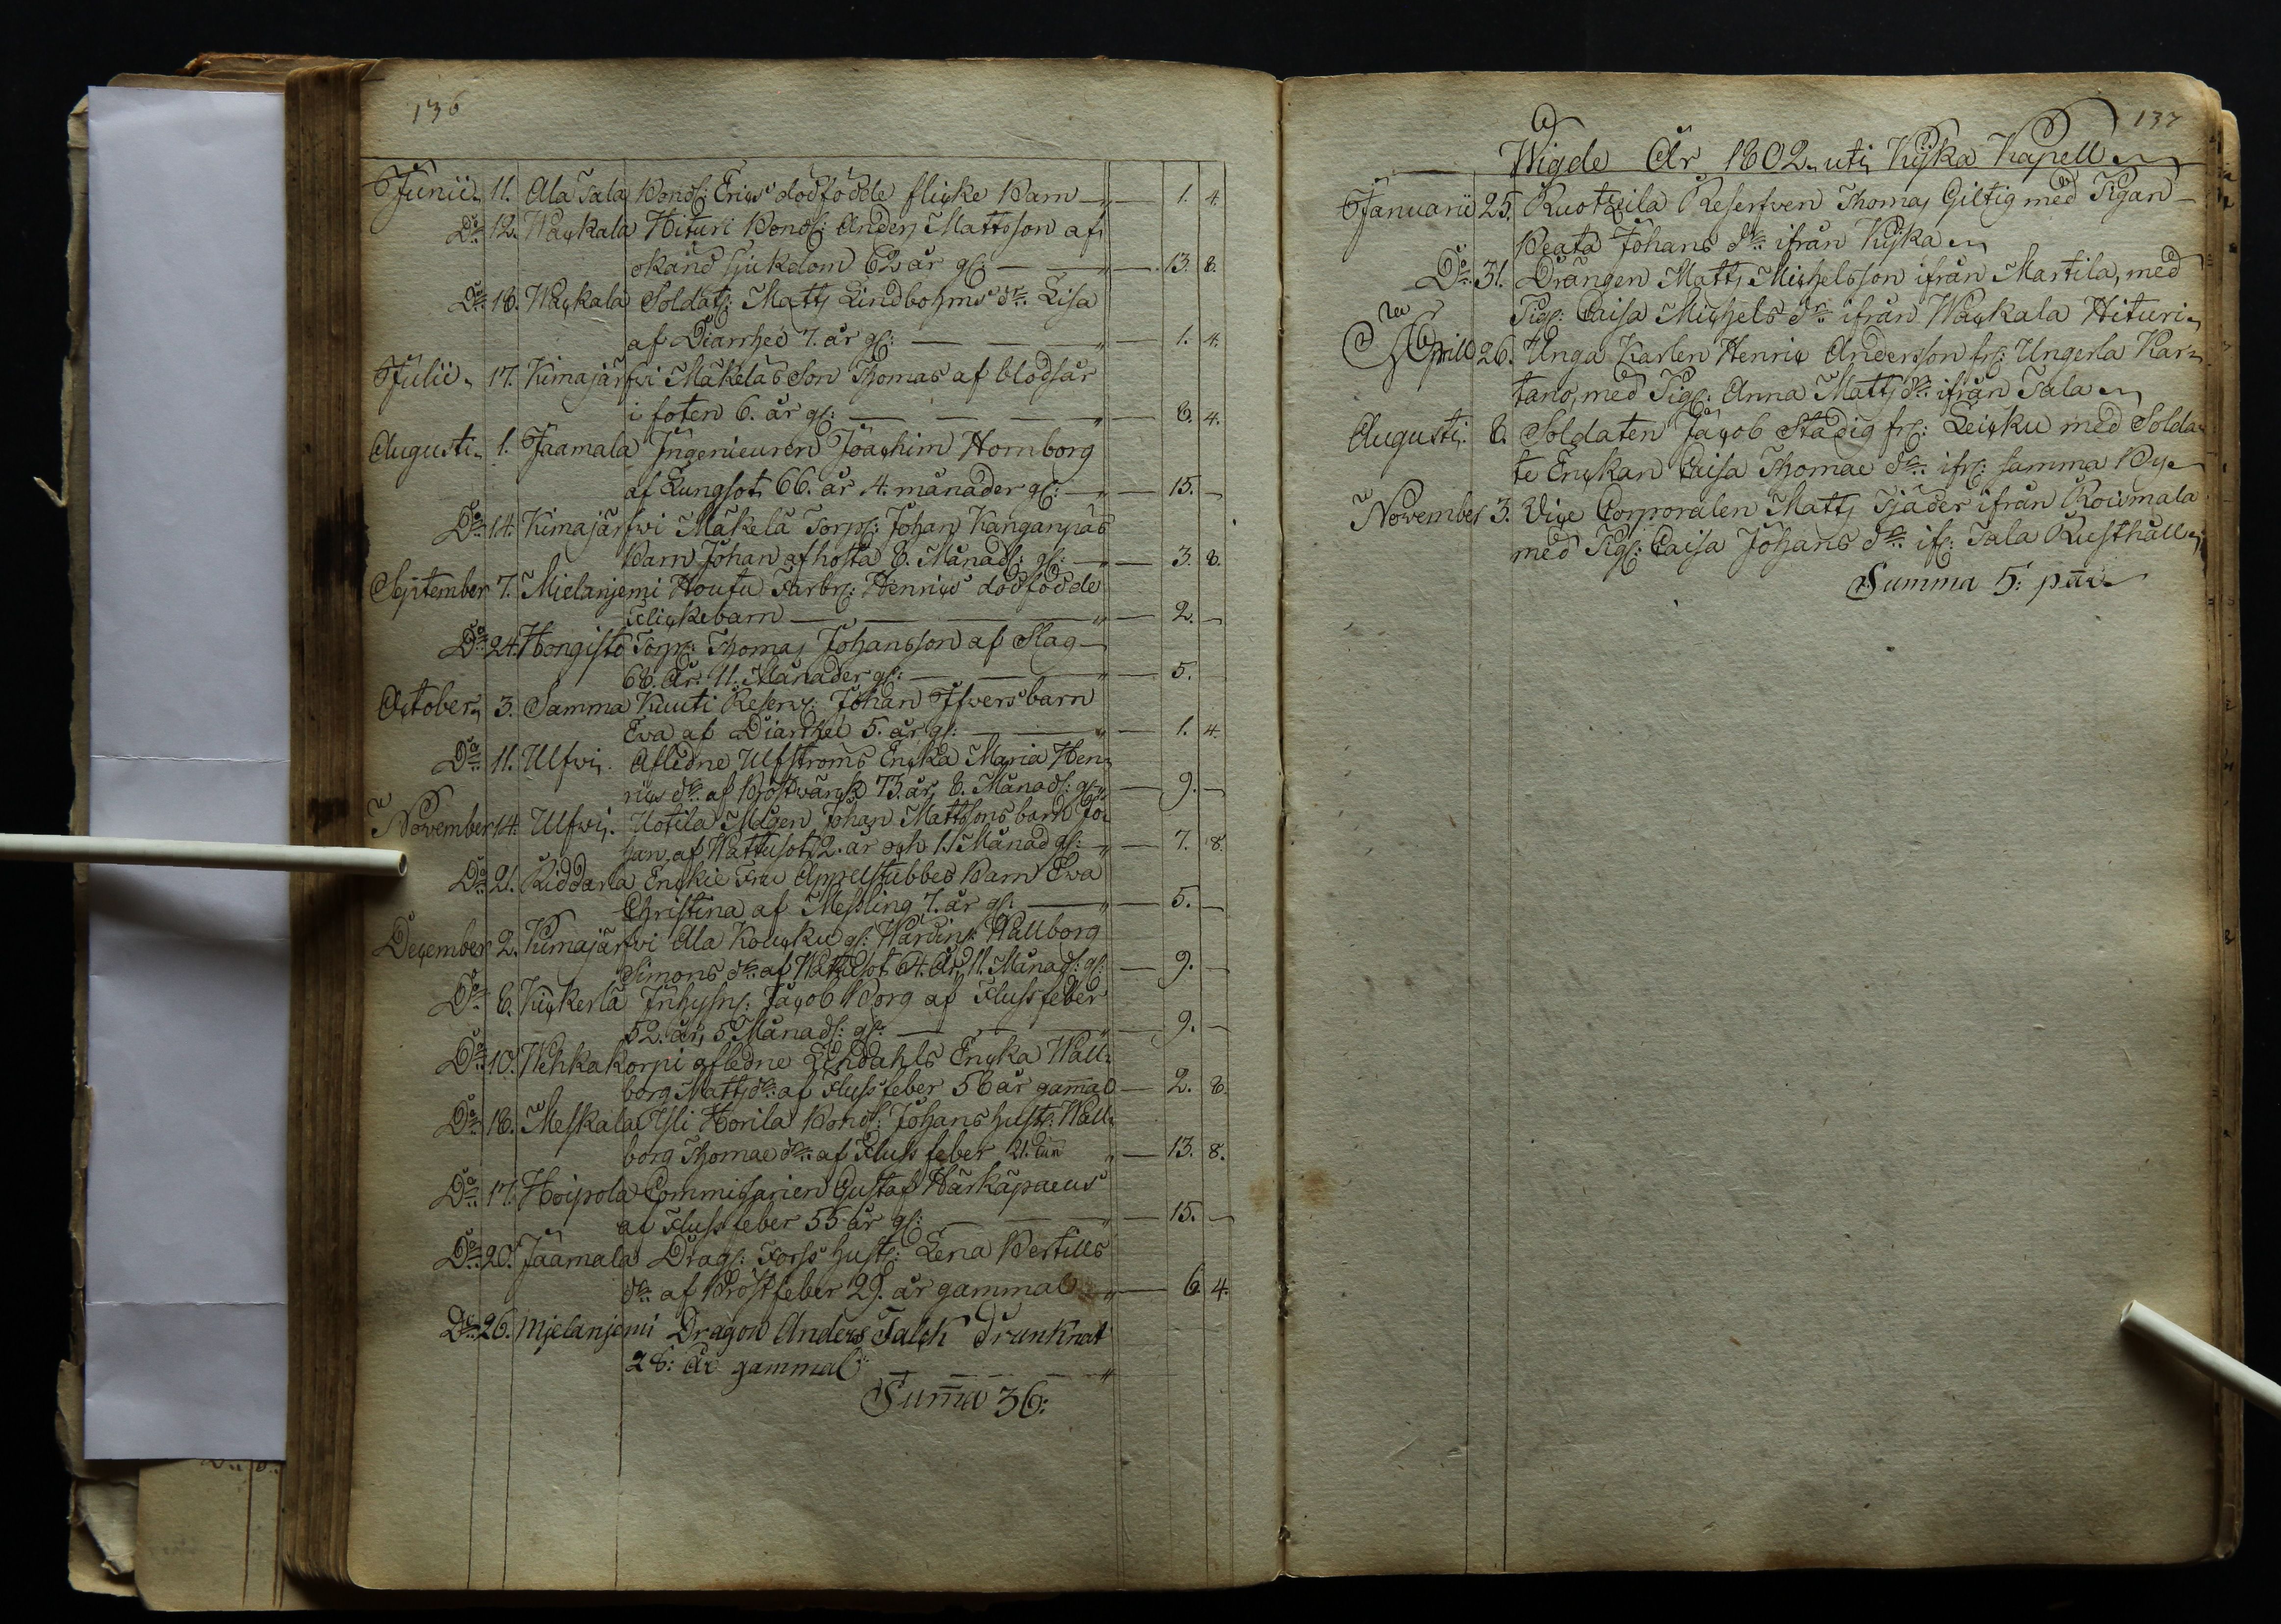 136
Junii 11. Ala Tala Bonds: Erics dödfödde flicke Barn — 1. 4.
Do 12. Wackala Hituri Bonds: Anders Mattsson af
okänd sjukdom 62 år gl: — 13. 8.
Do 18. Wackala Soldats: Matts Lindbohms dr: Lisa
af Diarrhée 7. år gl: — 1. 4.
Julii 17. Kimajärfwi Mäkeläs Son Thomas af blodsår
i foten 6. år gl: — 8. 4.
Augusti 1. Jaamala Ingenieuren Joachim Hornborg
af Lungsot 66. år 4. månader gl: — 15. —
Do 14. Kimajärfwi Mäkelä Torp: Johan Kanganpääs
Barn Johan af hosta 8. Månads: gl: — 3. 8.
September 7. Mielanjemi Houtu Farbr: Henrics dödfödde
Flickebarn — 2. —
Do 24. Hongisto Torp: Thomas Johansson af Slag
68. År 11. Månader gl: — 5.
October 3. Samma Kuuti Reserv: Johan Ifwers barn
Ewa af Diarrhée 5. år gl: — 1. 4.
Do 11. Ulfwi. Aflidne Ulfströms Encka Maria Hen
rics dr: af Bröstwärck 73. år, 8. Månads: gl: — 9. —
November 14. Ulfwi. Uotila Mågen Johan Mattssons barn Jo
han, af Wattusot 2. år och 1. Månad gl: — 7. 8.
Do 21. Riddarla Enckie Fru Appelstubbes Barn Ewa
Christina af Messling 7. år gl: — 5. —
December 2. Kimajärfwi Ala Koucku gl: Wärdin: Wallborg
Simons dr: af Wattusot 64. År, 11. Månads: gl: — 9. —
Do 6. Kickerlä Inhysn: Jacob Borg af Flussfeber
52. år, 5 Månads: gl: — 9. —
Do 10. Wehkakorpi aflidne Lindahls Encka Wall
borg Matts dr: af Fluss feber 56 år gammal — 2. 8.
Do 18. Meskala Yli Horila Bonds: Johans hustr: Wall
borg Thomae dr: af Fluss feber 21. — 13. 8.
Do 17. Hoipola Commisarien Gustaf Härkäpaeus
af Fluss feber 55 år gl: — 15. —
Do 20. Jaamala Drag: Forss hustr: Lena Bertills
dr: af Bröstfeber 29. år gammal — 6. 4.
Do 26. Mjelanjemi Dragon Anders Falck drunknat
28: År gammal —
Summa 36:
137
Wigde År 1802. uti Kijka Kapell
Januarii 25. Ruotzila Reserfven Thomas Giltig med Pigan
Beata Johans dr: ifrån Kijka
Do 31. Drängen Matts Michelsson ifrån Martila, med
Pig: Caisa Michels dr ifrån Wackala Hituri
April 26. Unga Karlen Henric Andersson fr: Ungerla Kar
tano, med Pig: Anna Matts dr: ifrån Tala
Augusti 8. Soldaten Jacob Stadig fr: Leicku med Solda
te Enckan Caisa Thomae dr: ifr: samma By
November 3. Vice Corporalen Matts Tjäder ifrån Roismala
med Pig: Caisa Johans dr: if: Tala Rusthåll
Summa 5: par